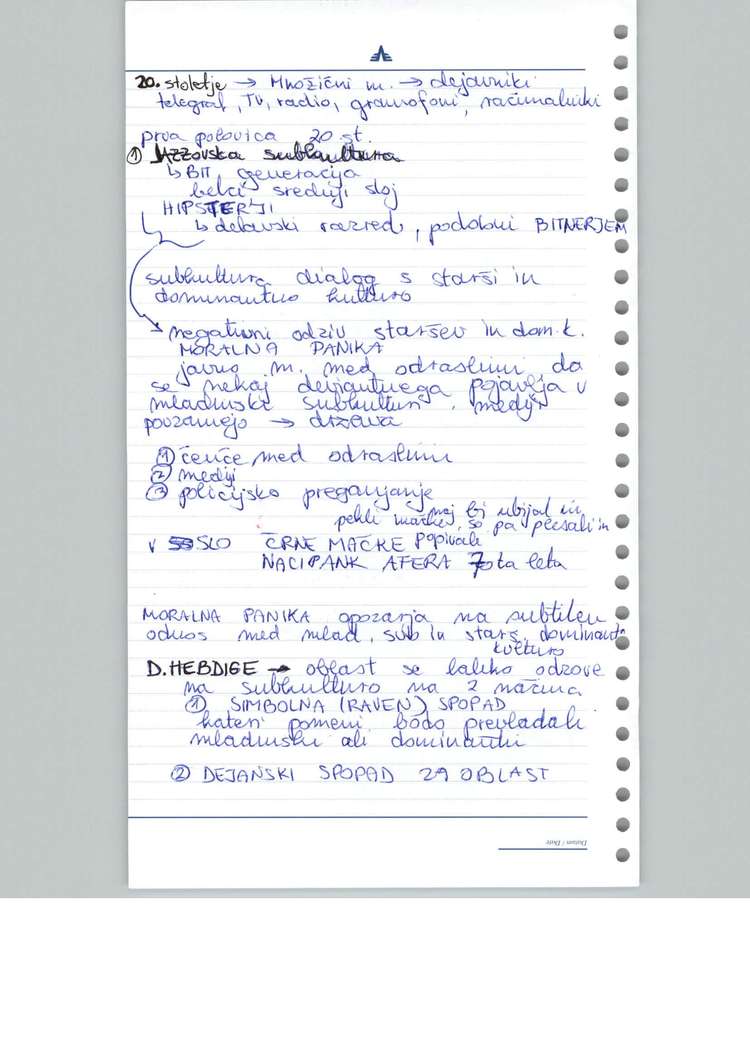 20. stoletje → Množični m. → dejavniki
telegraf, TV, radio, gramofoni, računalniki
prva polovica 20 st.
① JAZZovska subkultura
↳ BIT generacija
belci srednji sloj
HIPSTERJI
↳ delavski razred, podobni BITNERJEM
subkultura dialog s starši in
dominantno kulturo
→ negativni odziv staršev in dom. k.
MORALNA PANIKA
javno m. med odraslimi, da
se nekaj deviantnega pojavlja v
mladinski subkulturi. mediji
povzamejo → država
① čenče med odraslimi
② mediji
③ policijsko preganjanje
naj bi ubijali in
pekli mačke, so pa plesali in
popivali
v SLO ČRNE MAČKE
NACIPANK AFERA 70ta leta
MORALNA PANIKA opozarja na subtilen
odnos med mlad. sub in starš. dominantno
kulturo
D. HEBDIGE → oblast se lahko odzove
na subkulturo na 2 načina
① SIMBOLNA (RAVEN) SPOPAD
kateri pomeni bodo prevladali
mladinski ali dominantni
② DEJANSKI SPOPAD ZA OBLAST
Datum / Date